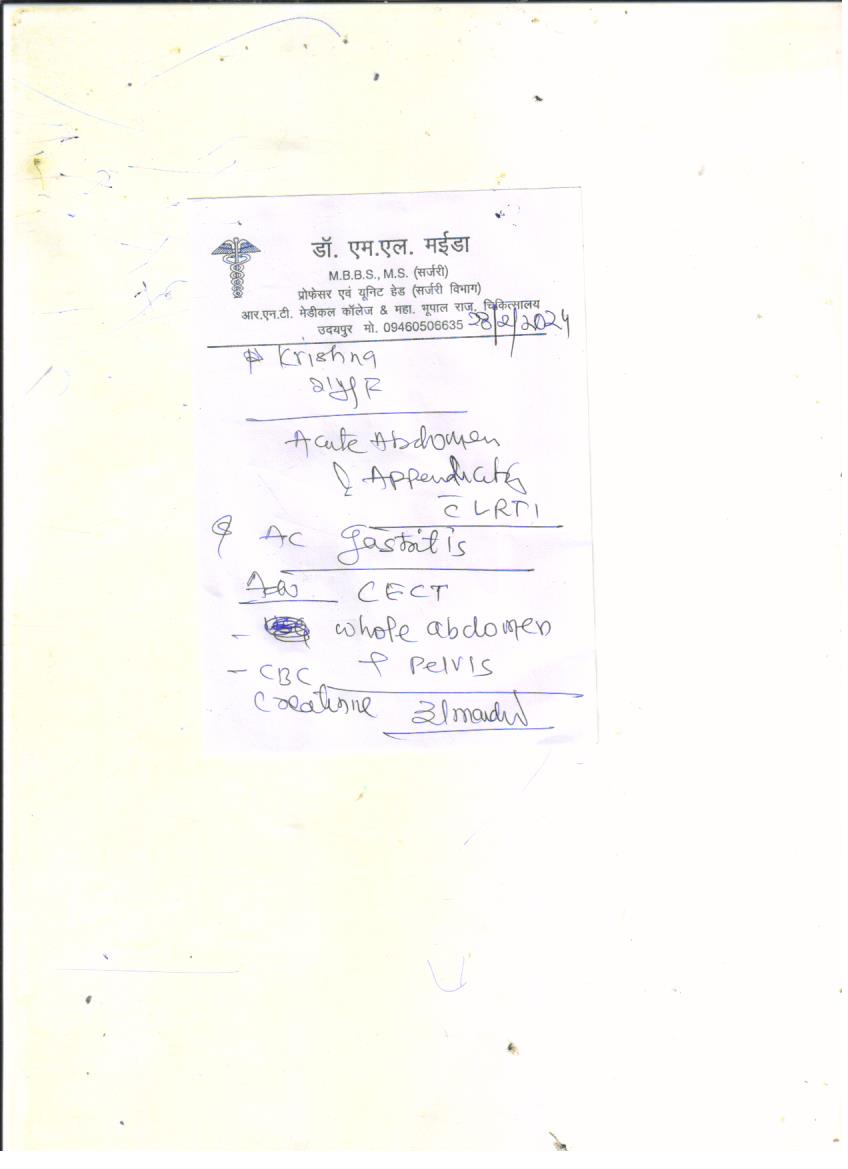 डॉ. एम.एल. मईडा
M.B.B.S., M.S. (सर्जरी)
प्रोफेसर एवं यूनिट हेड (सर्जरी विभाग)
आर.एन.टी. मेडीकल कॉलेज & महा. भूपाल राज. चिकित्सालय
उदयपुर मो. 09460506635 23/2/2024
Krishna
Acute Abdomen
Appendicitis
c̄ LRTI
AC Gastritis
Adv CECT
- whole abdomen
- CBC + Pelvis
Creatinine